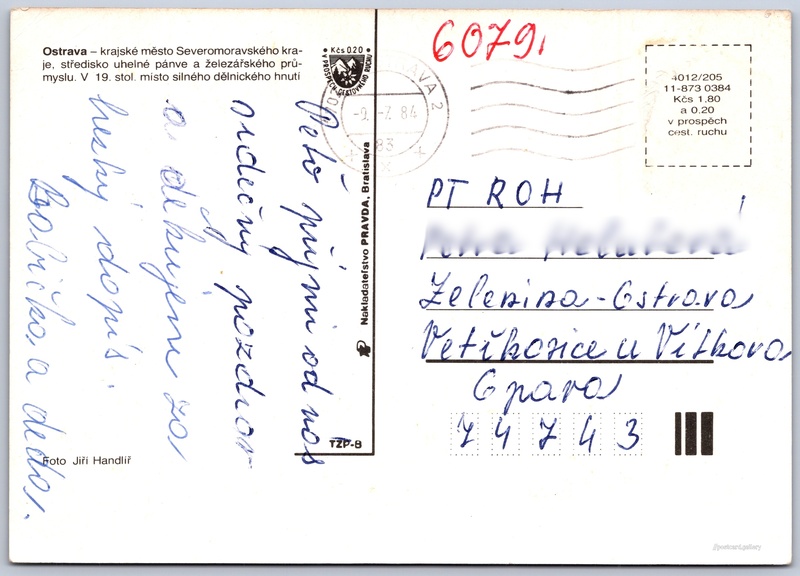 Ostrava – krajské město Severomoravského kra-
je, středisko uhelné pánve a železářského prů-
myslu. V 19. stol. místo silného dělnického hnutí
Kčs 0.20
V PROSPĚCH CESTOVNÍHO RUCHU
Peťo přijmi od nás
srdečný pozdrav
a děkujem za
hezký dopis.
Babička a děda.
Foto Jiří Handlíř
Nakladateľstvo PRAVDA, Bratislava
TZP-B
60791
AVA 2
-9.-7.84
83
4012/205
11-873 0384
Kčs 1,80
a 0.20
v prospěch
cest. ruchu
PT ROH
Zelenina-Ostrava
Vetřkovice u Vítkova
Opava
74743
postcard.gallery